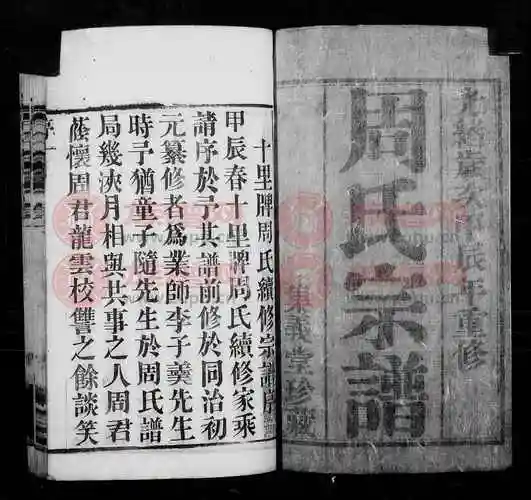 光緒歲次甲辰年重修
周氏宗譜
集義堂珍藏
十里牌周氏續修宗譜序
甲辰春十里牌周氏續修家乘
請序於予其譜前修於同治初
元纂修者為業師李子羹先生
時予猶童子隨先生於周氏譜
局幾浹月相與共事之人周君
蔭懷周君龍雲校讐之餘談笑
序一